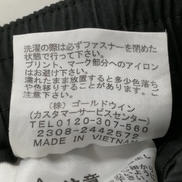 洗濯の際は必ずファスナーを閉めた
状態で行って下さい。
プリント、マーク部分へのアイロン
はおやめ下さい。
濡れたまま放置すると多少色落ち
や色移りすることがあります。
(株)ゴールドウイン
(カスタマーサービスセンター)
TEL0120-307-560
2308-2442572
MADE IN VIETNAM